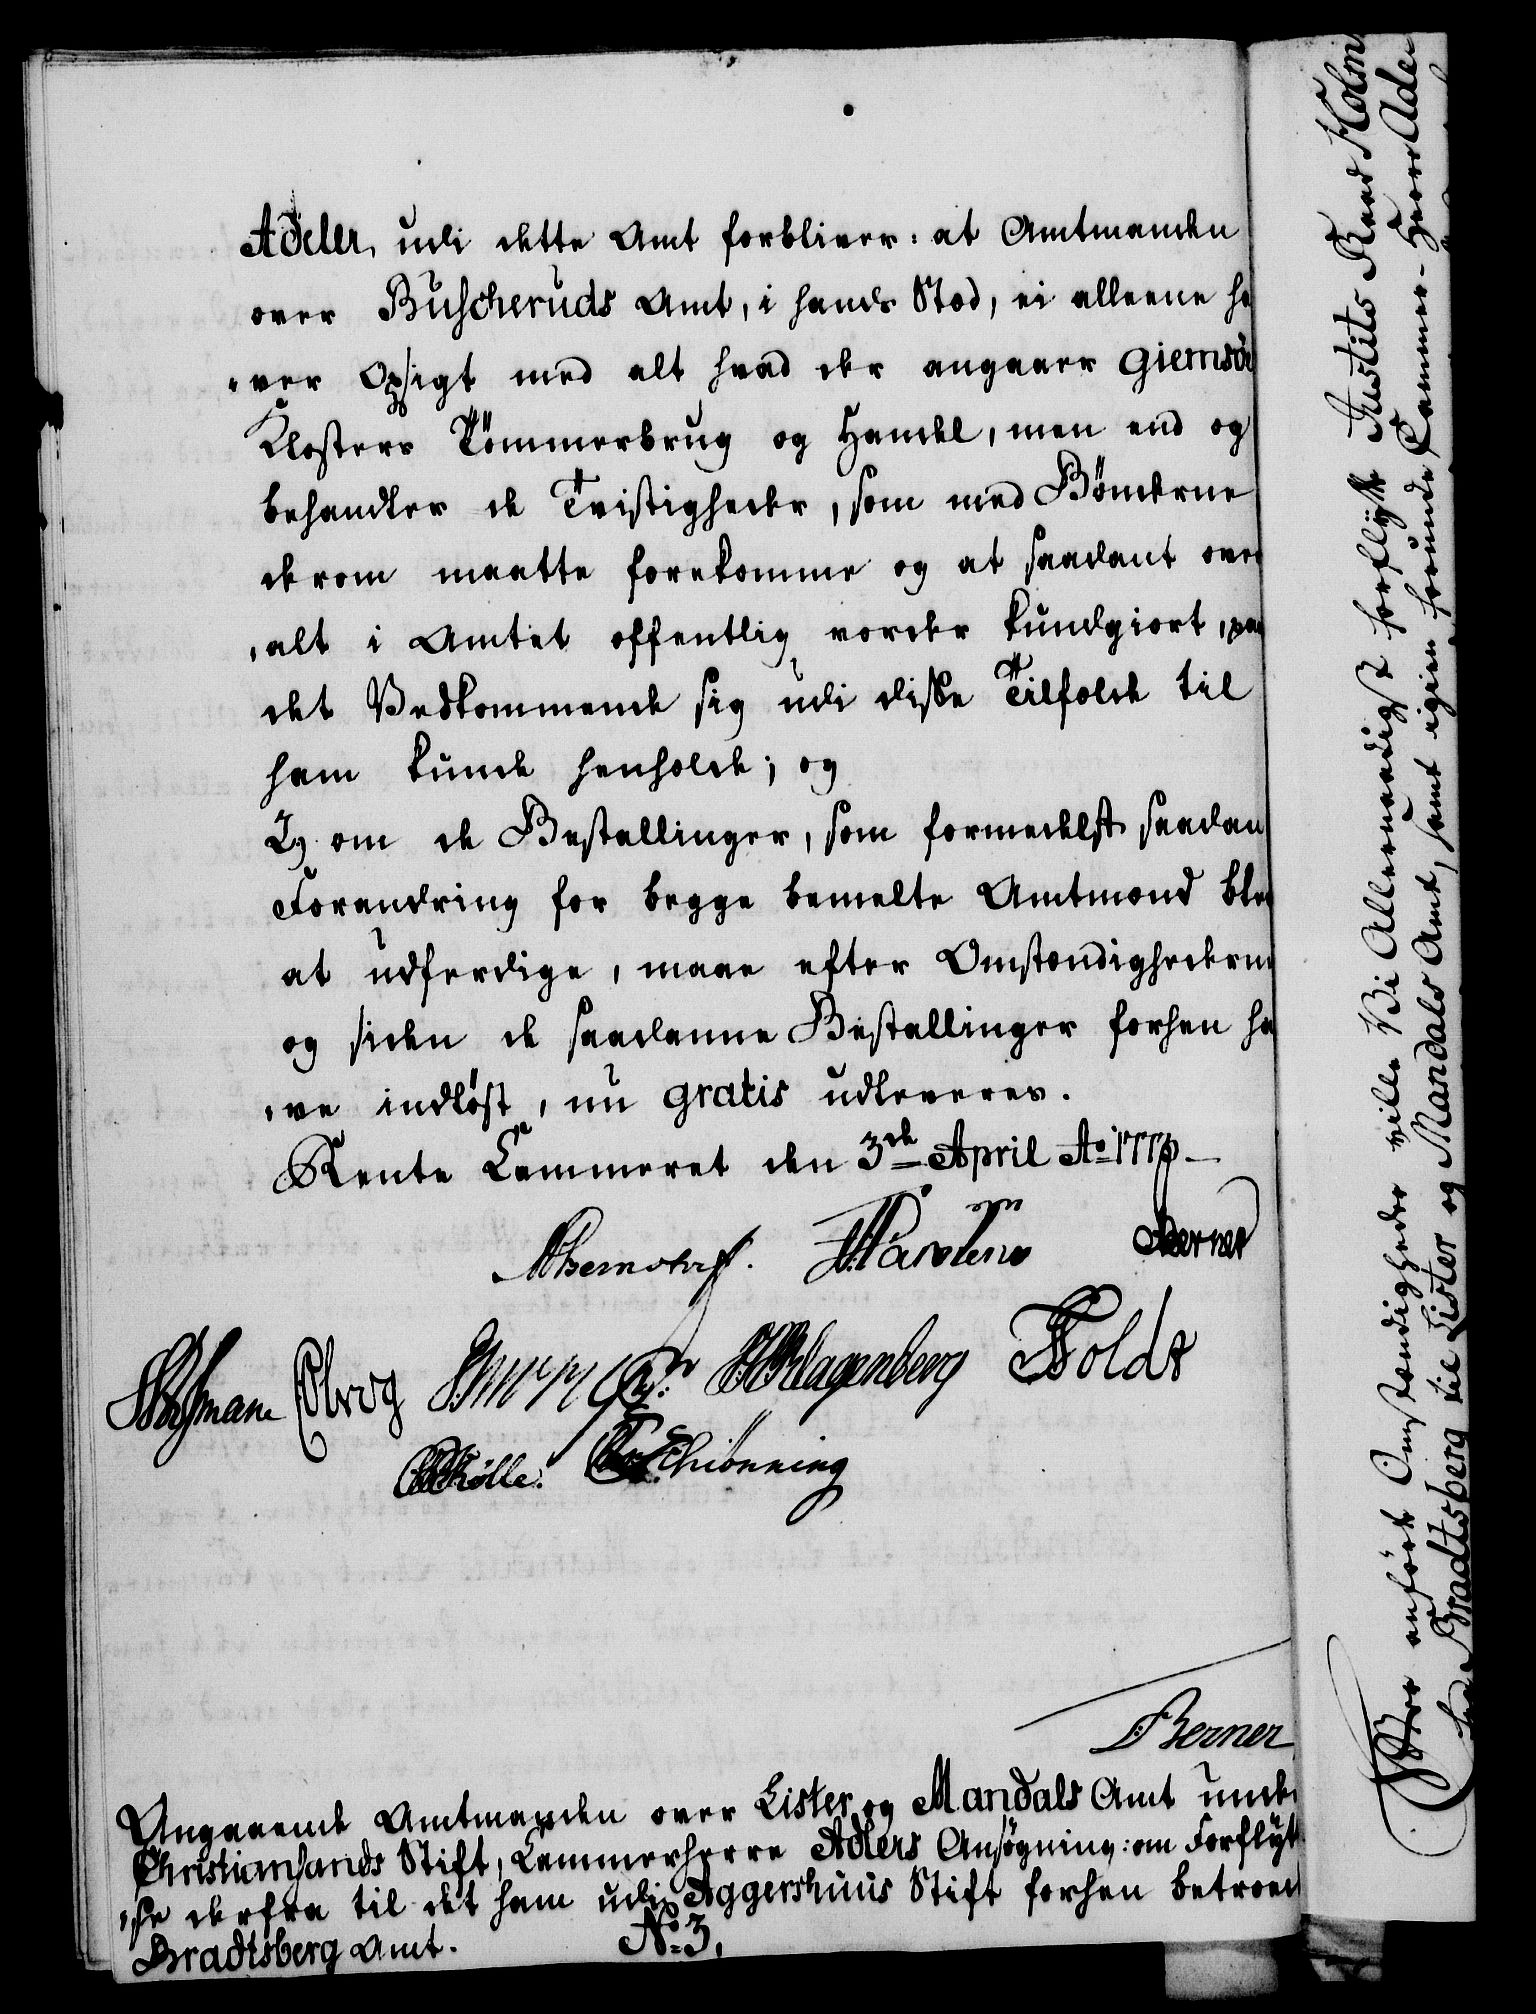 Adeler, udi dette Amt forbliver: at Amtmanden
over Buscheruds Amt, i hands Stæd, ei alleene ha
„ver Opsigt med alt hvad der angaaer Giemsöe
Klosters Tömmerbrug og Handel, men end og
behandler de Tvistigheder, som med Bönderne
derom maatte forekomme og at saadant over
„alt i Amtet offentlig vorder kundgiort, paa
det Vedkommende sig udi disse Tilfælde til
ham kunde henholde; og
2) om de Bestallinger, som formedelst saadan
Forandring for begge bemelte Amtmænd blev
at udferdige, maae efter Omstændighederne
og siden de saadanne Bestallinger forhen ha
„ve indløst, nu gratis udleveres.
Rente Cammeret den 3de April Ao 1773
Bernstorff. Berner
Klagenberg Foldt
Schiönning
Berner
Angaaende Amtmanden over Lister og Mandals Amt unde
Christiansands Stift, Cammerherre Adlers Ansøgning: om Forflyt
„se derfra til det ham udi Aggershuus Stift forhen betroed
Bradtsberg Amt. No 3.
Paa anförte Omstændigheder ville Vi Allernaadigst forflytte Justits Raad Holm
fra Bradtsberg til Lister og Mandals Amt, samt igien forunde Cammer-Herr Ade